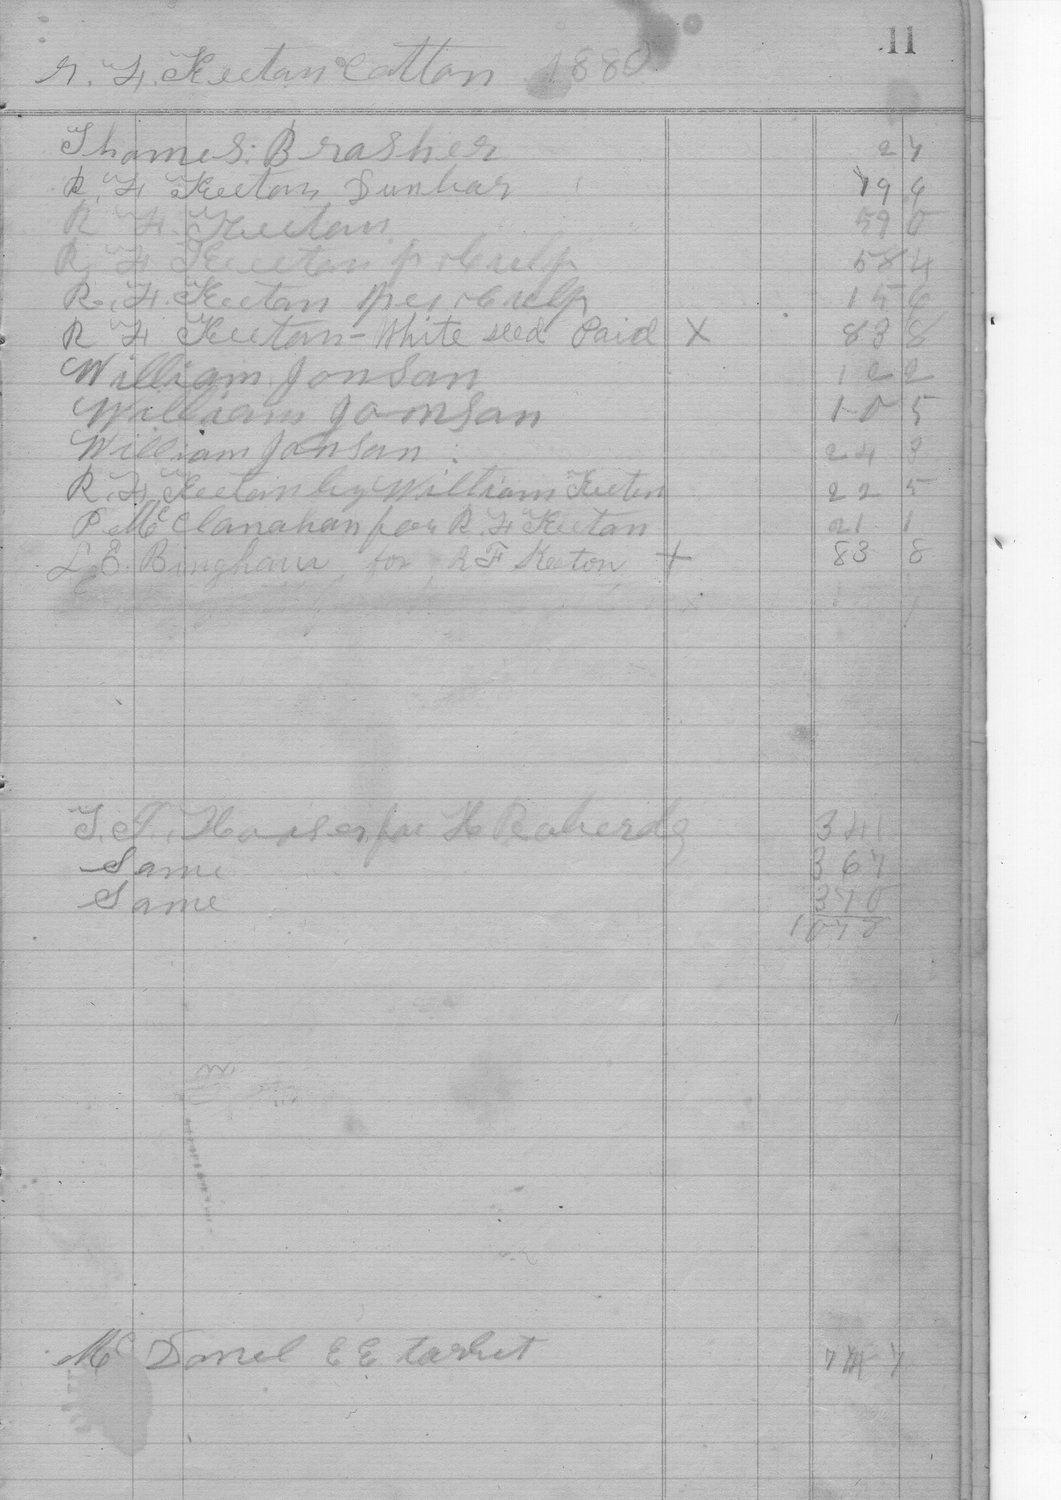 11
R. F. Keetan Cotton 1880
Thomes. Brasher 2 7
R. F. Keetan Dunbar 79 9
R F. Keetan 59 0
R. F. Keetan 58 4
R. F. Keetan 15 6
R F Keetan - White seed Paid X 83 8
William Jonsan 1 2 2
William Jomsan 1-0 5
William Jonsan 24 3
R. F. Keetan by William Keeten 22 5
P. McClanahan for R. F. Keetan 21 1
L E. Bingham for R F Keeton + 83 8
T. for H Roberds 341
Same 367
Same 370
1078
Mc Donel E E